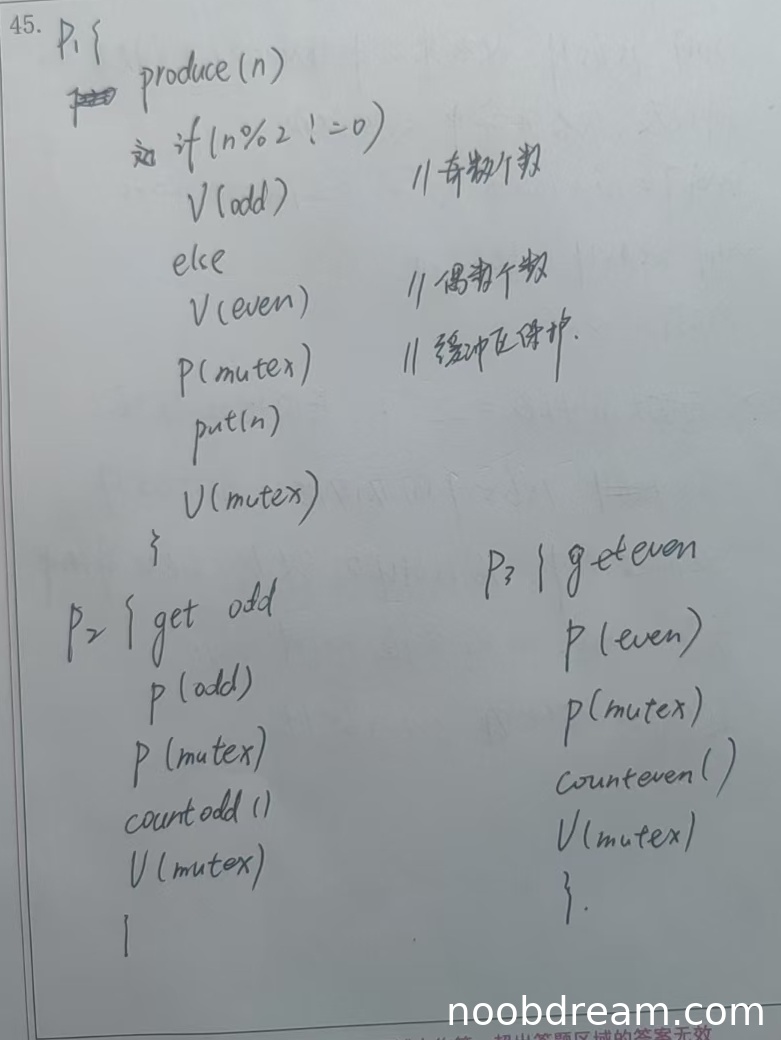 45.
P₁ {
produce(n)
if(n%2!=0)
V(odd) //奇数个数
else
V(even) //偶数个数
P(mutex) //缓冲区保护.
put(n)
V(mutex)
}
P₂ { get odd
P(odd)
P(mutex)
countodd()
V(mutex)
}
P₃ { geteven
P(even)
P(mutex)
counteven()
V(mutex)
}.
noobdream.com
超出答题区域的答案无效